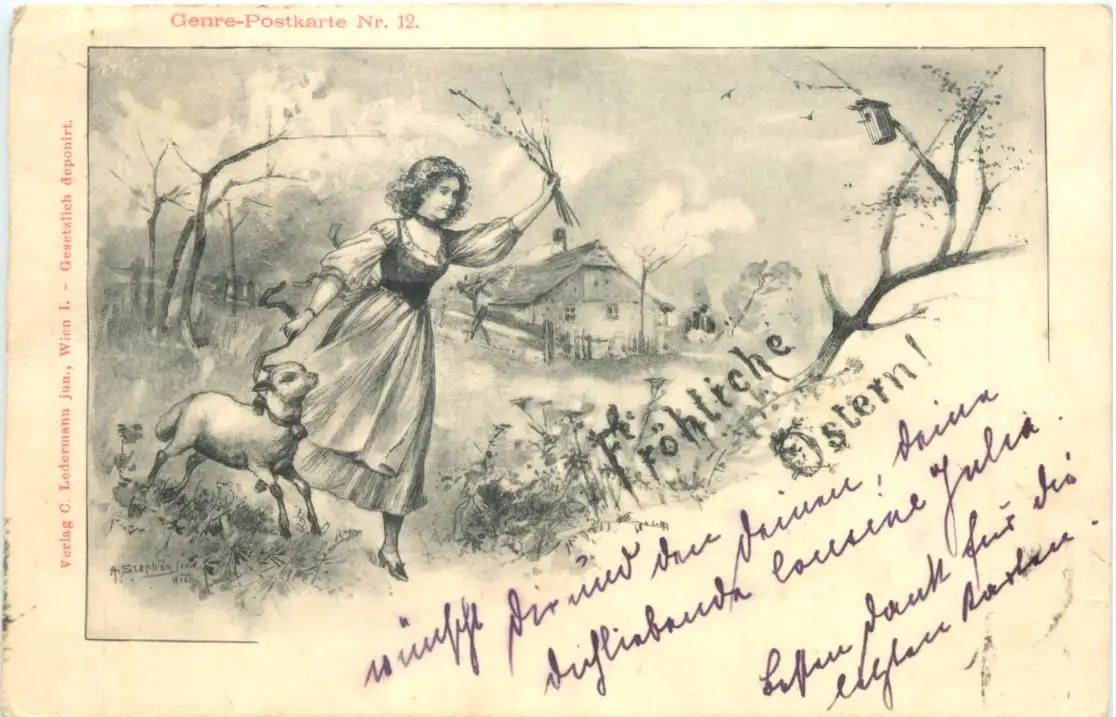 Genre-Postkarte Nr. 12.
Verlag C. Ledermann jun., Wien I. - Gesetzlich deponirt.
Fröhliche
Ostern!
A. Stephan
Wien
wünscht dir und den deinen, deine
dichliebende Cousine Julia.
Besten Dank für die
letzten Karten.